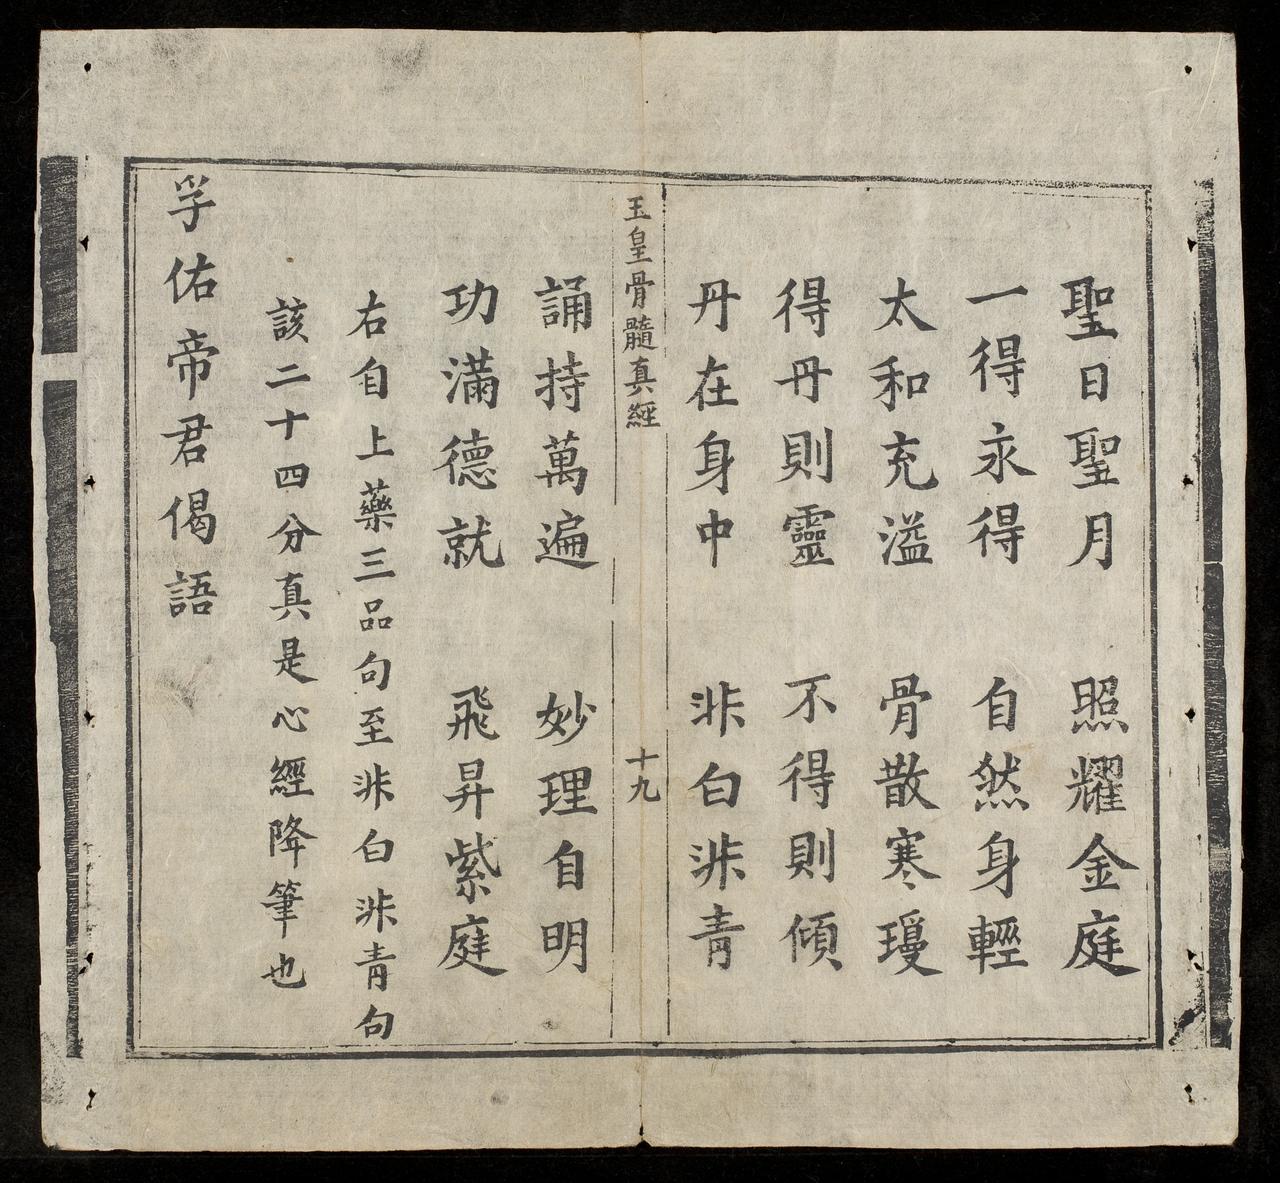 聖日聖月 照耀金庭
一得永得 自然身輕
太和充溢 骨散寒瓊
得丹則靈 不得則傾
丹在身中 非白非青
玉皇骨髓真經 十九
誦持萬遍 妙理自明
功滿德就 飛昇紫庭
右自上藥三品句至非白非青句
該二十四分真是心經降筆也
孚佑帝君偈語